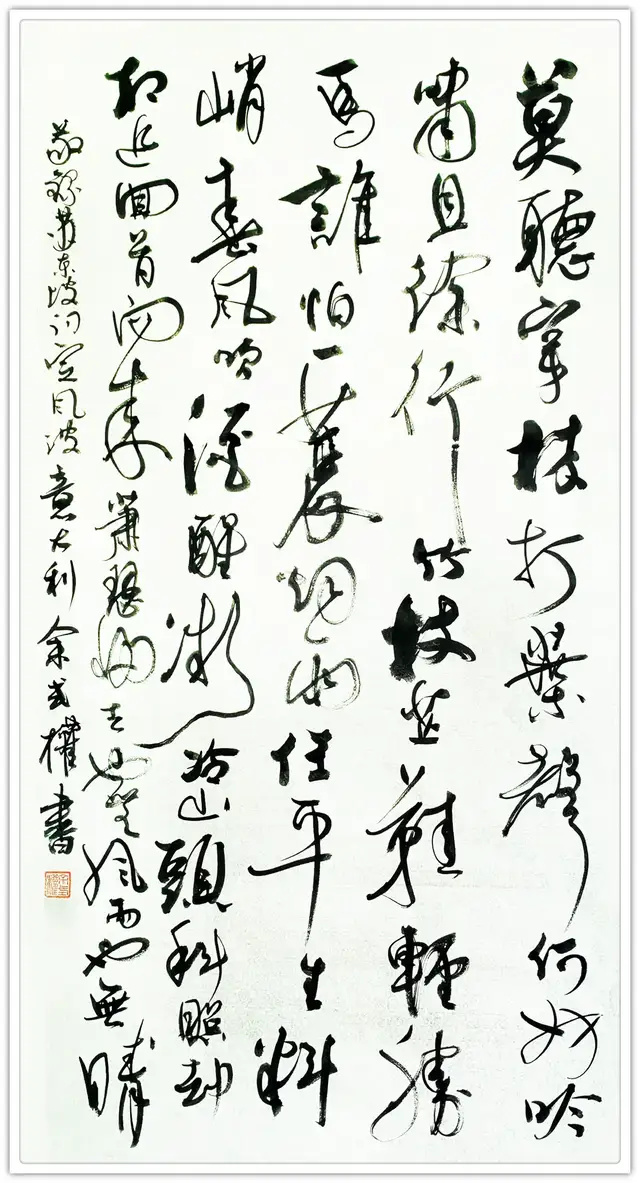 莫聽穿林打葉聲何妨吟
嘯且徐行竹杖芒鞋輕勝
馬誰怕一蓑烟雨任平生料
峭春風吹酒醒微冷山頭斜照却
相迎回首向來蕭瑟歸去也無風雨也無晴
敬錄蘇東坡詞定風波意大利余武權書